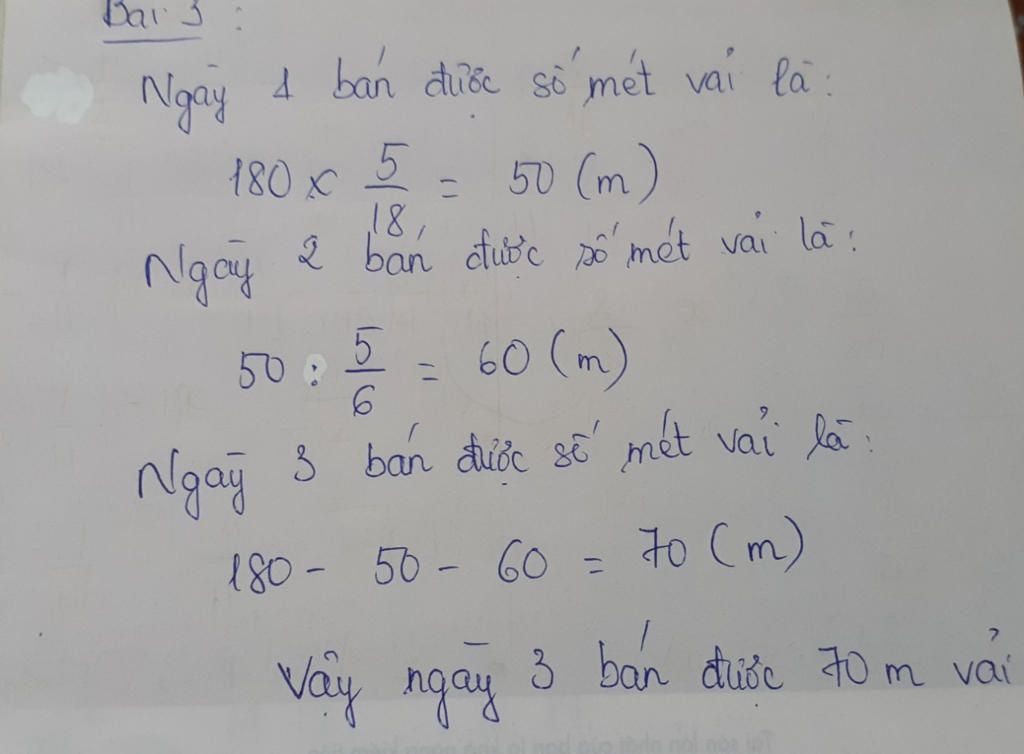 Bài 3:
Ngày 1 bán được số mét vải là:
180 x 5/18 = 50 (m)
Ngày 2 bán được số mét vải là:
50 : 5/6 = 60 (m)
Ngày 3 bán được số mét vải là:
180 - 50 - 60 = 70 (m)
Vậy ngày 3 bán được 70 m vải